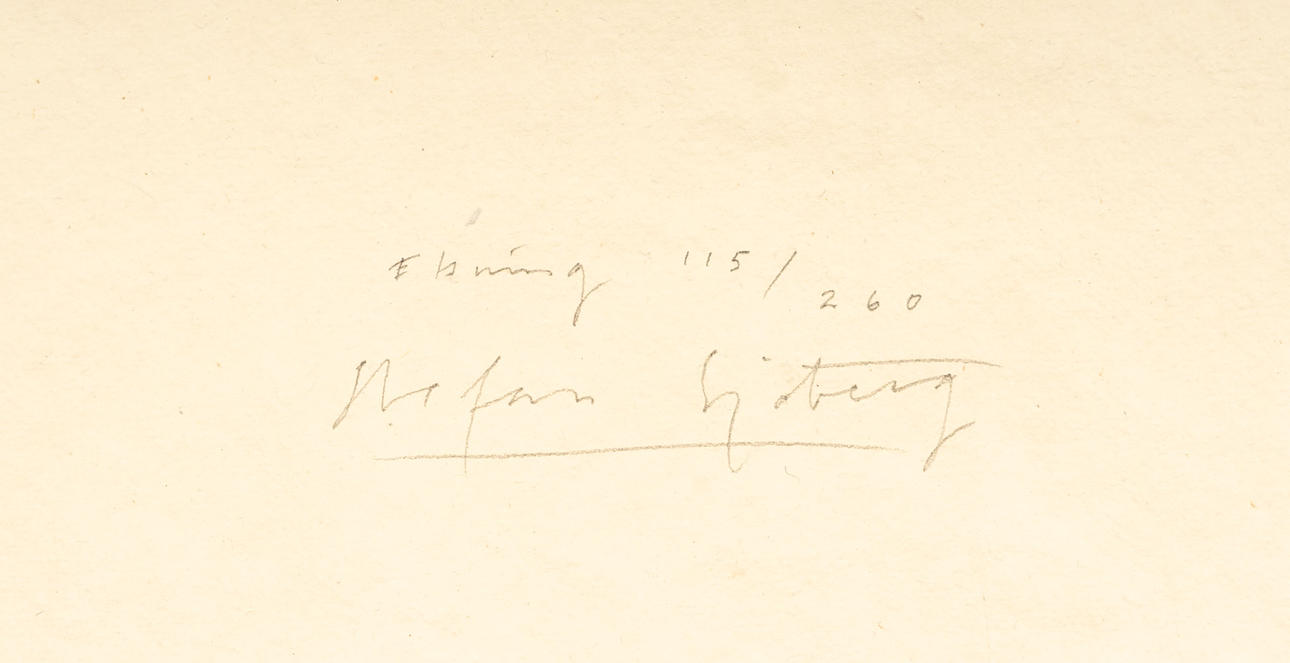 115/260
Stefan Sjöberg